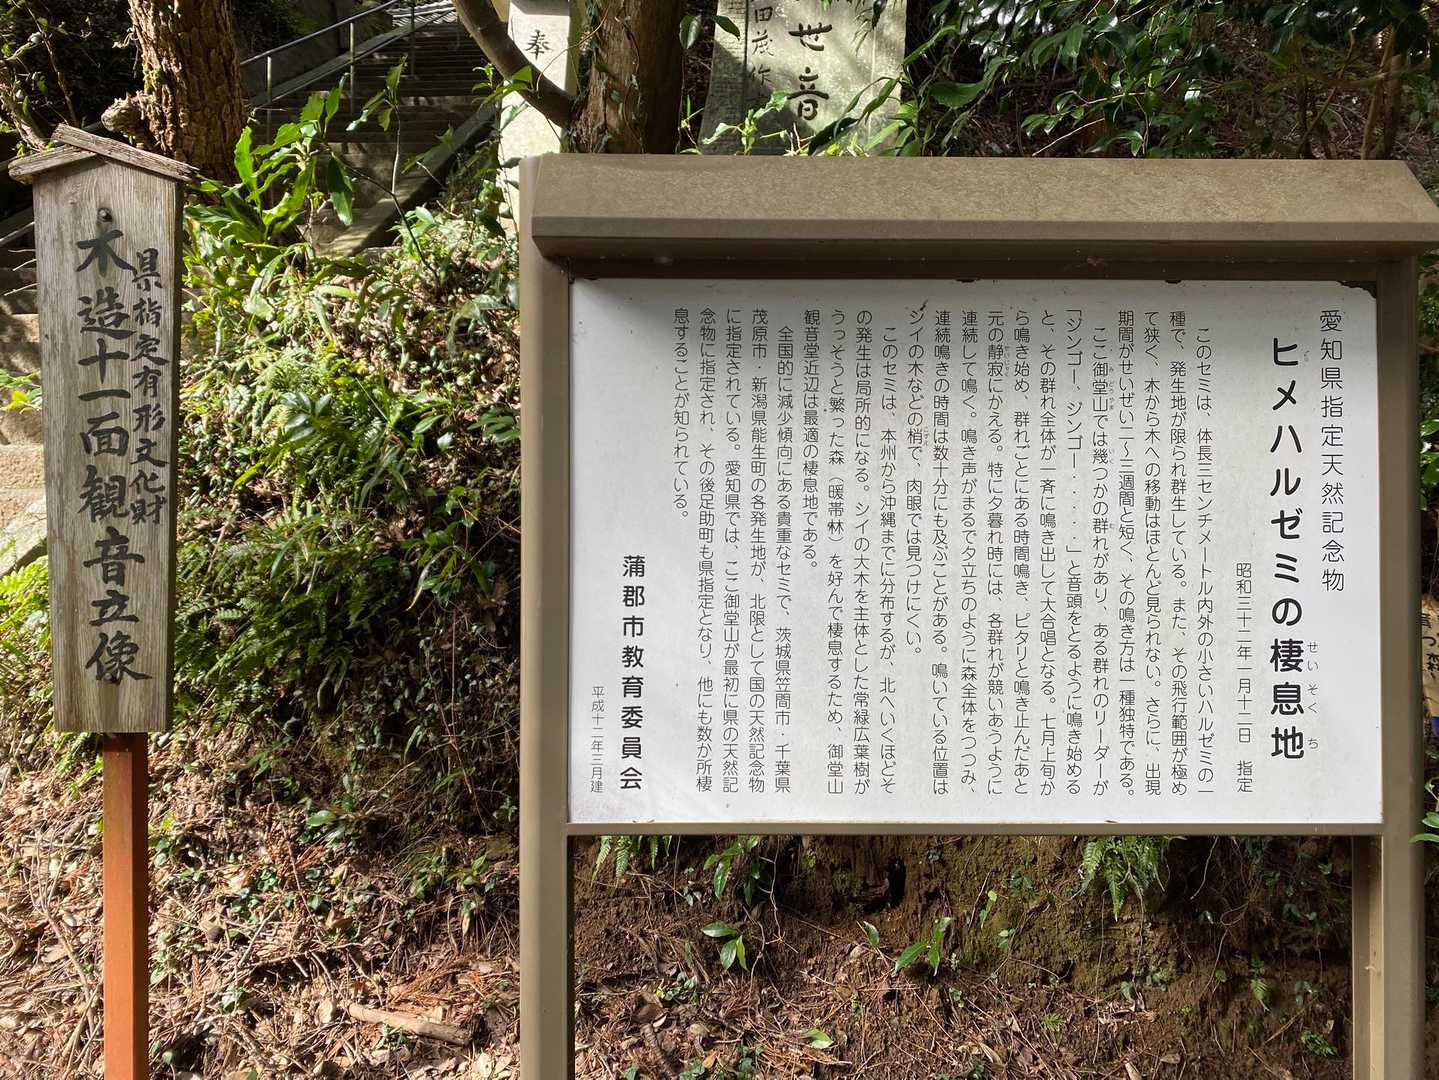 愛知県指定天然記念物
ヒメハルゼミの棲息地
せいそくち
昭和三十二年一月十二日 指定
このセミは、体長三センチメートル内外の小さいハルゼミの一
種で、発生地が限られ群生している。また、その飛行範囲が極め
て狭く、木から木への移動はほとんど見られない。さらに、出現
期間がせいぜい二〜三週間と短く、その鳴き方は一種独特である。
ここ御堂山では幾つかの群れがあり、ある群れのリーダーが
「ジンゴー、ジンゴー・・・・・」と音頭をとるように鳴き始める
と、その群れ全体が一斉に鳴き出して大合唱となる。七月上旬か
ら鳴き始め、群れごとにある時間鳴き、ピタリと鳴き止んだあと
元の静寂にかえる。特に夕暮れ時には、各群れが競いあうように
連続して鳴く。鳴き声がまるで夕立ちのように森全体をつつみ、
連続鳴きの時間は数十分にも及ぶことがある。鳴いている位置は
シイの木などの梢で、肉眼では見つけにくい。
このセミは、本州から沖縄までに分布するが、北へいくほどそ
の発生は局所的になる。シイの大木を主体とした常緑広葉樹が
うっそうと繁った森（暖帯林）を好んで棲息するため、御堂山
観音堂近辺は最適の棲息地である。
全国的に減少傾向にある貴重なセミで、茨城県笠間市・千葉県
茂原市・新潟県能生町の各発生地が、北限として国の天然記念物
に指定されている。愛知県では、ここ御堂山が最初に県の天然記
念物に指定され、その後足助町も県指定となり、他にも数か所棲
息することが知られている。
蒲郡市教育委員会
平成十二年三月建
県指定有形文化財
木造十一面観音立像
奉
世音
田茂作